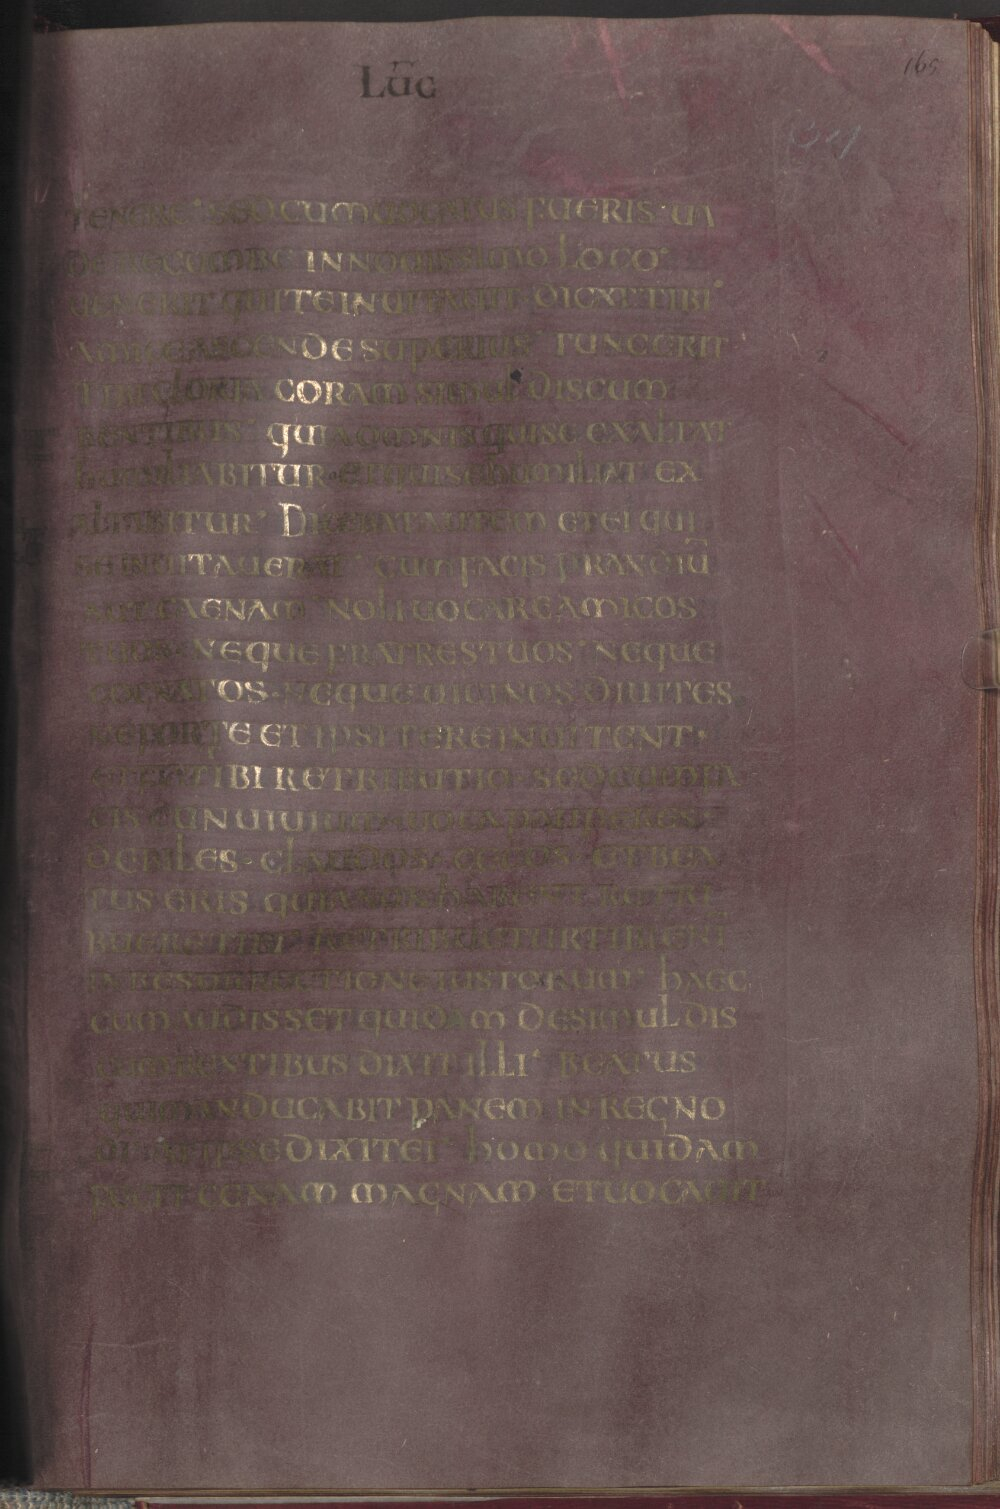 LŪC
165
TENERE · SED CUM UOCATUS FUERIS · UA
DE RECUMBE IN NOUISSIMO LOCO ·
UENERIT QUI TE INUITAUIT · DICAT TIBI ·
AMICE ASCENDE SUPERIUS · TUNC ERIT
TIBI GLORIA CORAM SIMUL DISCUM
BENTIBUS · QUIA OMNIS QUI SE EXALTAT
HUMILIABITUR · ET QUI SE HUMILIAT EX
ALTABITUR · DICEBAT AUTEM ET EI QUI
SE INUITAUERAT · CUM FACIS PRANDIŪ
AUT CAENAM · NOLI UOCARE AMICOS
TUOS · NEQUE FRATRES TUOS · NEQUE
COGNATOS · NEQUE UICINOS DIUITES
NE FORTE ET IPSI TE REINUITENT ·
ET FIAT TIBI RETRIBUTIO · SED CUM FA
CIS CONUIUIUM UOCA PAUPERES
DEBILES · CLAUDOS · CAECOS · ET BEA
TUS ERIS QUIA NON HABENT RETRI
BUERE TIBI · RETRIBUETUR TIBI ENĪ
IN RESURRECTIONE IUSTORUM · HAEC
CUM AUDISSET QUIDAM DE SIMUL DIS
CUMBENTIBUS DIXIT ILLI · BEATUS
QUI MANDUCABIT PANEM IN REGNO
DĪ · AT IPSE DIXIT EI · HOMO QUIDAM
FECIT CENAM MAGNAM ET UOCAUIT